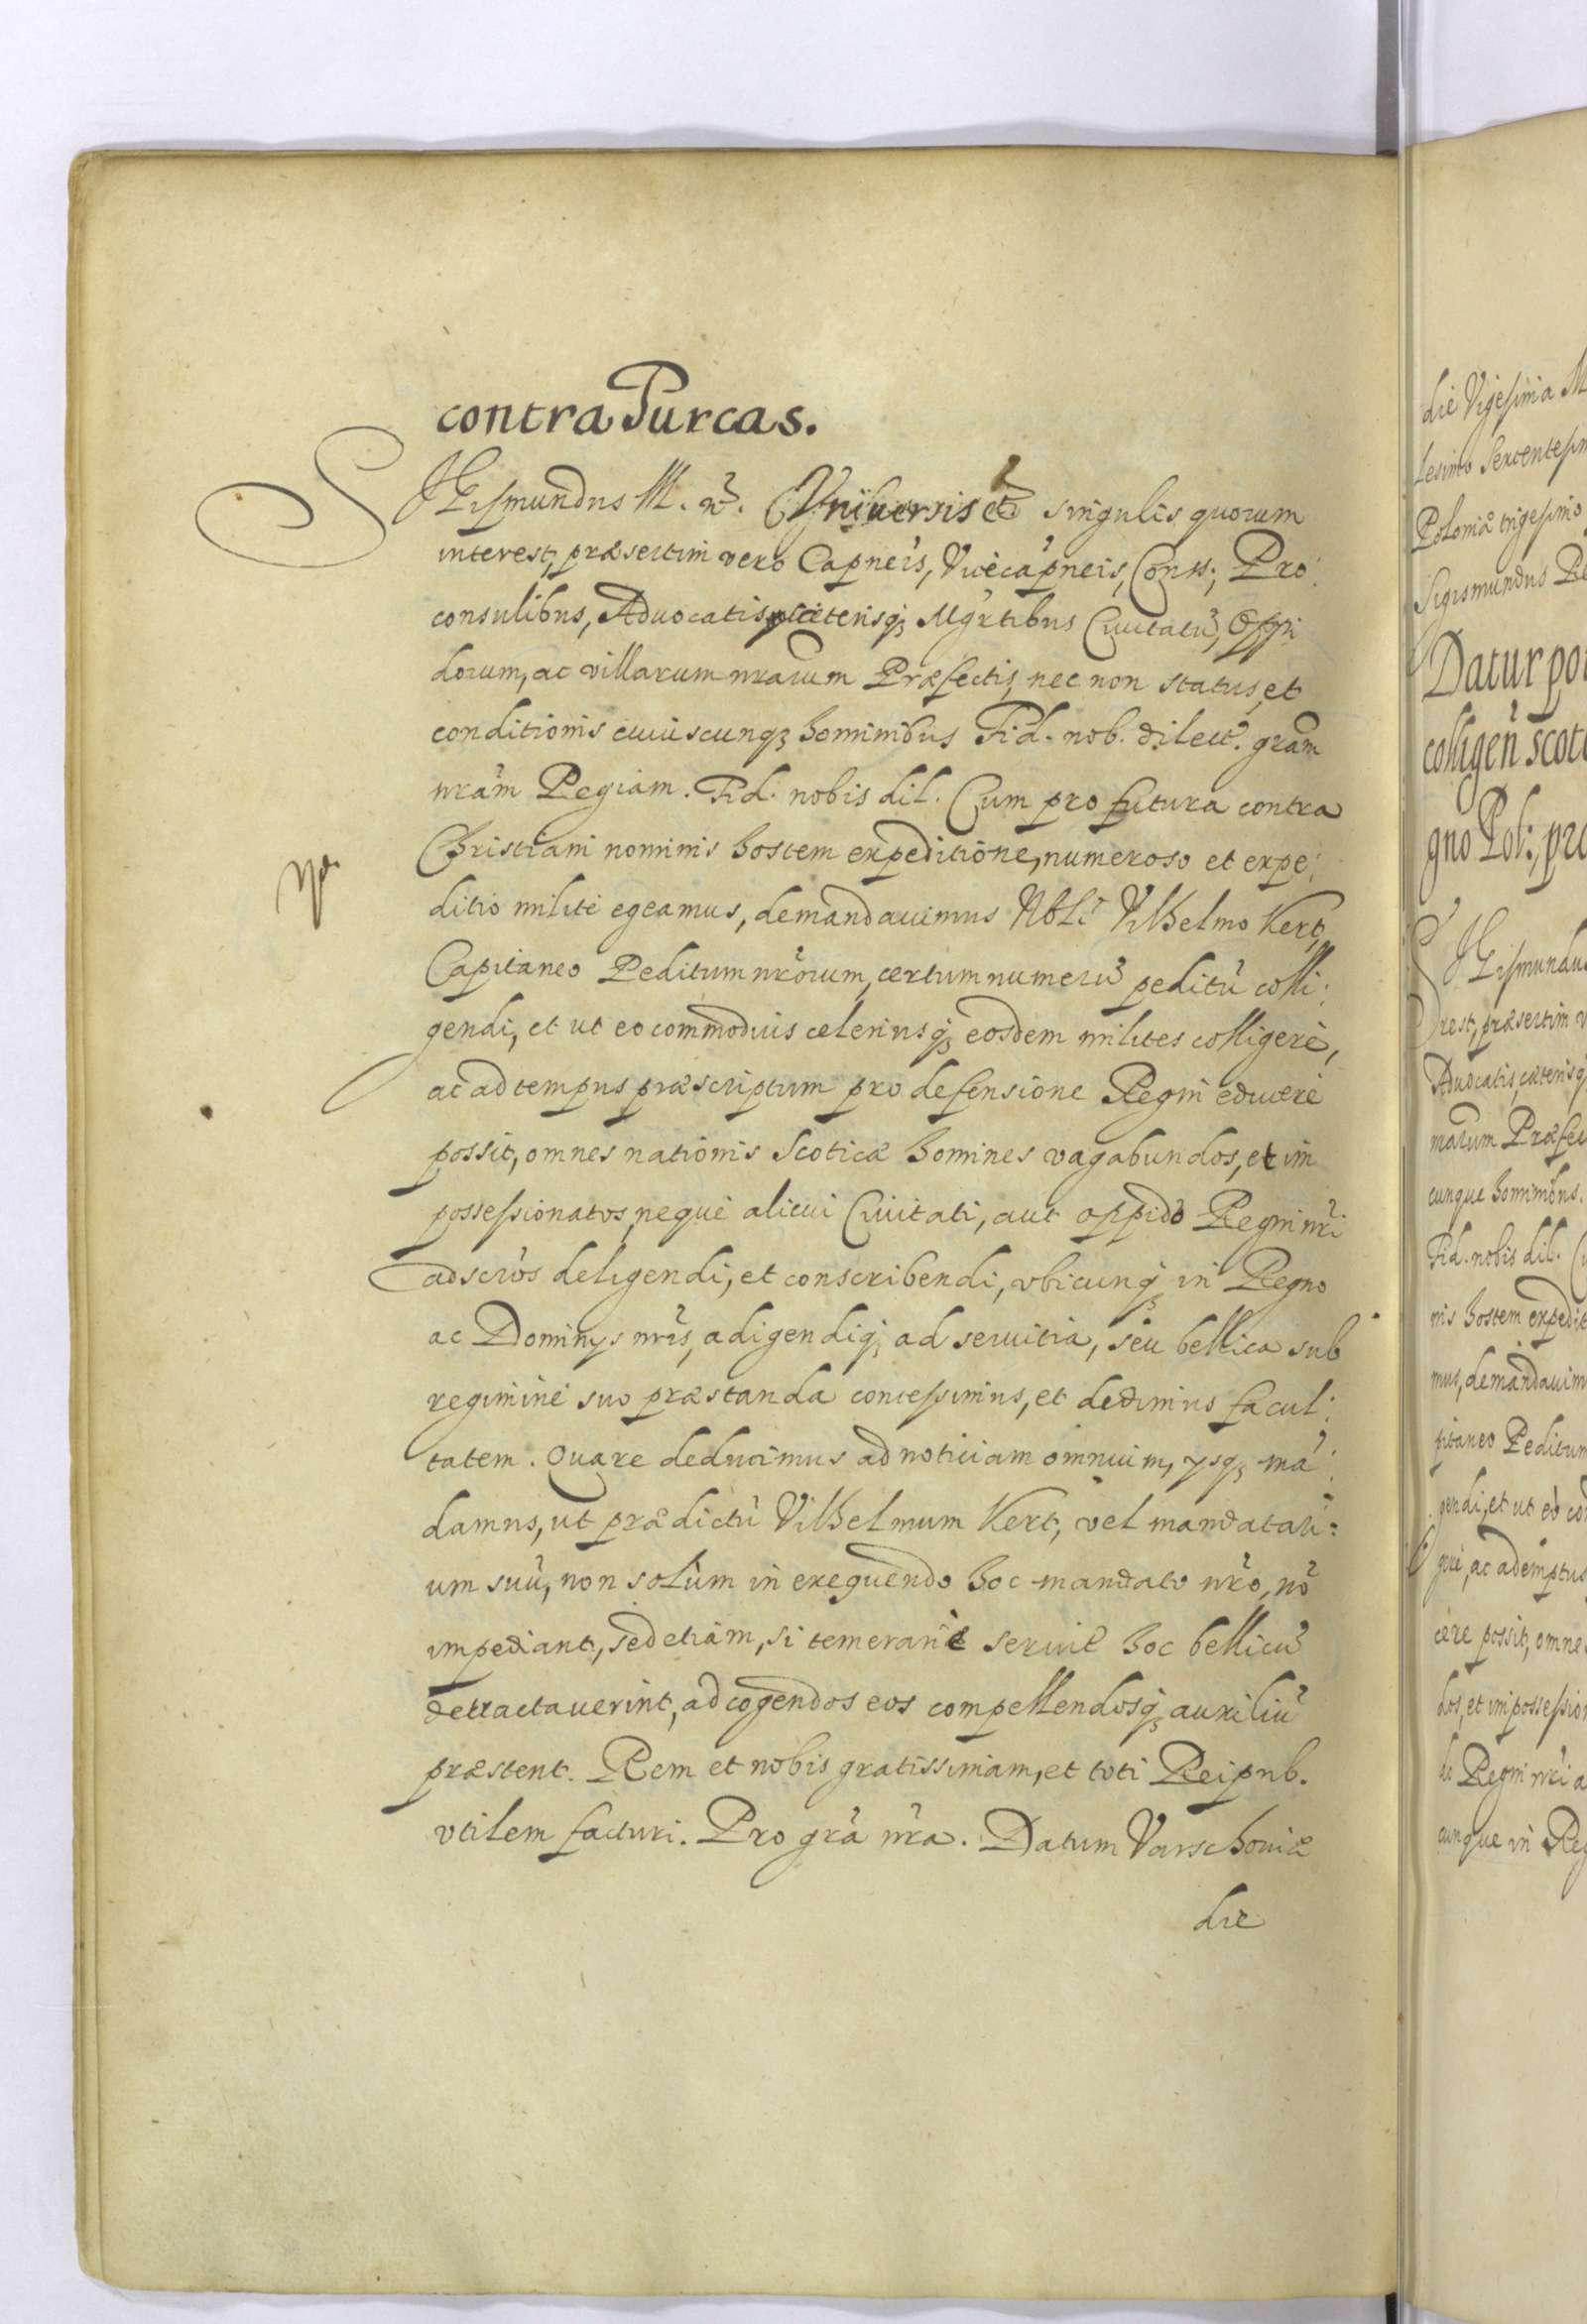 contra Turcas.
SIGismundus III. etc. Universis et singulis quorum
interest, præsertim vero Capneis, Vicecapneis, Conss; Pro:
consulibus, Advocatis, cæterisq; Mgrtibus Civitatũ, Oppi
dorum, ac villarum nrarum Præfectis, nec non status, et
conditionis cuiuscunq; hominibus Fid. nob. dilect. gram
nram Regiam. Fid. nobis dil. Cum pro futura contra
Christiani nominis hostem expeditione, numeroso et expe:
ditio milite egeamus, demandavimus Nbli Vilhelmo Kert,
Capitaneo Peditum nrorum, certum numerũ peditũ colli:
gendi, et ut eo commodius celeriusq; eosdem milites colligere,
ac ad tempus præscriptum pro defensione Regni educere
possit, omnes nationis Scoticæ homines vagabundos, et im
possessionatos, neque alicui Civitati, aut oppido Regni nri
adscros deligendi, et conscribendi, vbicunq; in Regno
ac Dominys nris, adigendiq; ad servitia, seu bellica sub
regimine suo præstanda concessimus, et dedimus facul:
tatem. Quare deducimus ad noticiam omnium, ysq; mã:
damus, ut prædictũ Vilhelmum Kert, vel mandatari:
um suũ, non solùm in exequendo hoc mandato nro, nõ
impediant, sed etiam, si temerariè servit hoc bellicũ
detractaverint, ad cogendos eos compellendosq; auxiliũ
præstent. Rem et nobis gratissimam, et toti Reipub.
vtilem facturi. Pro gra nra. Datum Varschoviæ
die
die Vigesima M
lesimo Sexcentesim
Poloniæ trigesimo
Sigismundus Re
Datur po
colligen scoti
gno Pol:, pro
SIGismundus
rest, præsertim v
Advocatis, cæterisq
rarum Præfec
cunque hominibus.
Fid. nobis dil. C
nis hostem expedit
mus, demandavim
pitaneo Peditum
gendi, et ut eò co
gere, ac ad temptus
cere possit, omne
dos, et impossession
do Regni nri a
cunque in Reg